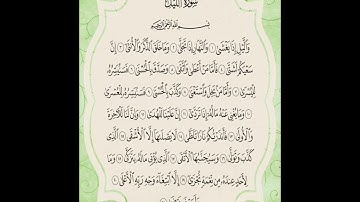 سورة الليل
بسم الله الرحمن الرحيم
وَالَّيْلِ إِذَا يَغْشَىٰ ۝١ وَالنَّهَارِ إِذَا تَجَلَّىٰ ۝٢ وَمَا خَلَقَ الذَّكَرَ وَالْأُنثَىٰ ۝٣ إِنَّ
سَعْيَكُمْ لَشَتَّىٰ ۝٤ فَأَمَّا مَنْ أَعْطَىٰ وَاتَّقَىٰ ۝٥ وَصَدَّقَ بِالْحُسْنَىٰ ۝٦ فَسَنُيَسِّرُهُ
لِلْيُسْرَىٰ ۝٧ وَأَمَّا مَنْ بَخِلَ وَاسْتَغْنَىٰ ۝٨ وَكَذَّبَ بِالْحُسْنَىٰ ۝٩ فَسَنُيَسِّرُهُ لِلْعُسْرَىٰ
۝١٠ وَمَا يُغْنِي عَنْهُ مَالُهُ إِذَا تَرَدَّىٰ ۝١١ إِنَّ عَلَيْنَا لَلْهُدَىٰ ۝١٢ وَإِنَّ لَنَا لَلْآخِرَةَ
وَالْأُولَىٰ ۝١٣ فَأَنذَرْتُكُمْ نَارًا تَلَظَّىٰ ۝١٤ لَا يَصْلَاهَا إِلَّا الْأَشْقَى ۝١٥ الَّذِي
كَذَّبَ وَتَوَلَّىٰ ۝١٦ وَسَيُجَنَّبُهَا الْأَتْقَى ۝١٧ الَّذِي يُؤْتِي مَالَهُ يَتَزَكَّىٰ ۝١٨ وَمَا
لِأَحَدٍ عِندَهُ مِن نِّعْمَةٍ تُجْزَىٰ ۝١٩ إِلَّا ابْتِغَاءَ وَجْهِ رَبِّهِ الْأَعْلَىٰ ۝٢٠
وَلَسَوْفَ يَرْضَىٰ